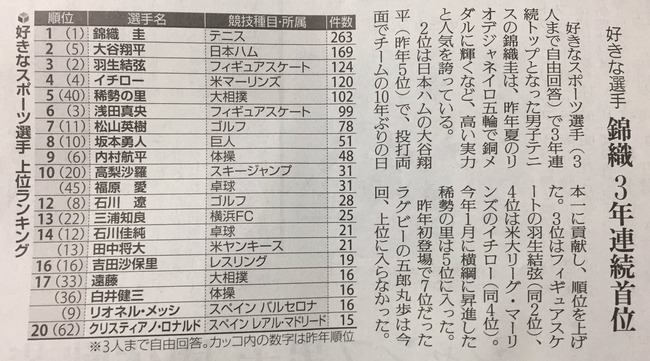 好きな選手 錦織 3年連続首位
好きなスポーツ選手(3
人まで自由回答)で3年連
続トップとなった男子テニ
スの錦織圭は、昨年夏のリ
オデジャネイロ五輪で銅メ
ダルに輝くなど、高い実力
と人気を誇っている。
2位は日本ハムの大谷翔
平(昨年5位)で、投打両
面でチームの10年ぶりの日
本一に貢献し、順位を上げ
た。3位はフィギュアスケ
ートの羽生結弦(同2位)、
4位は米大リーグ・マーリ
ンズのイチロー(同4位)。
今年1月に横綱に昇進した
稀勢の里は5位に入った。
昨年初登場で7位だった
ラグビーの五郎丸歩は今
回、上位に入らなかった。
好きなスポーツ選手 上位ランキング
順位 選手名 競技種目・所属 件数
1 (1) 錦織 圭 テニス 263
2 (5) 大谷翔平 日本ハム 169
3 (2) 羽生結弦 フィギュアスケート 124
4 (4) イチロー 米マーリンズ 120
5 (40) 稀勢の里 大相撲 102
6 (3) 浅田真央 フィギュアスケート 99
7 (11) 松山英樹 ゴルフ 78
8 (10) 坂本勇人 巨人 51
9 (6) 内村航平 体操 48
10 (20) 高梨沙羅 スキージャンプ 31
(45) 福原 愛 卓球 31
12 (8) 石川 遼 ゴルフ 28
13 (22) 三浦知良 横浜FC 25
14 (12) 石川佳純 卓球 21
(13) 田中将大 米ヤンキース 21
16 (16) 吉田沙保里 レスリング 19
17 (33) 遠藤 大相撲 16
(36) 白井健三 体操 16
(9) リオネル・メッシ スペイン バルセロナ 16
20 (62) クリスティアノ・ロナルド スペイン レアル・マドリード 15
※3人まで自由回答。カッコ内の数字は昨年順位